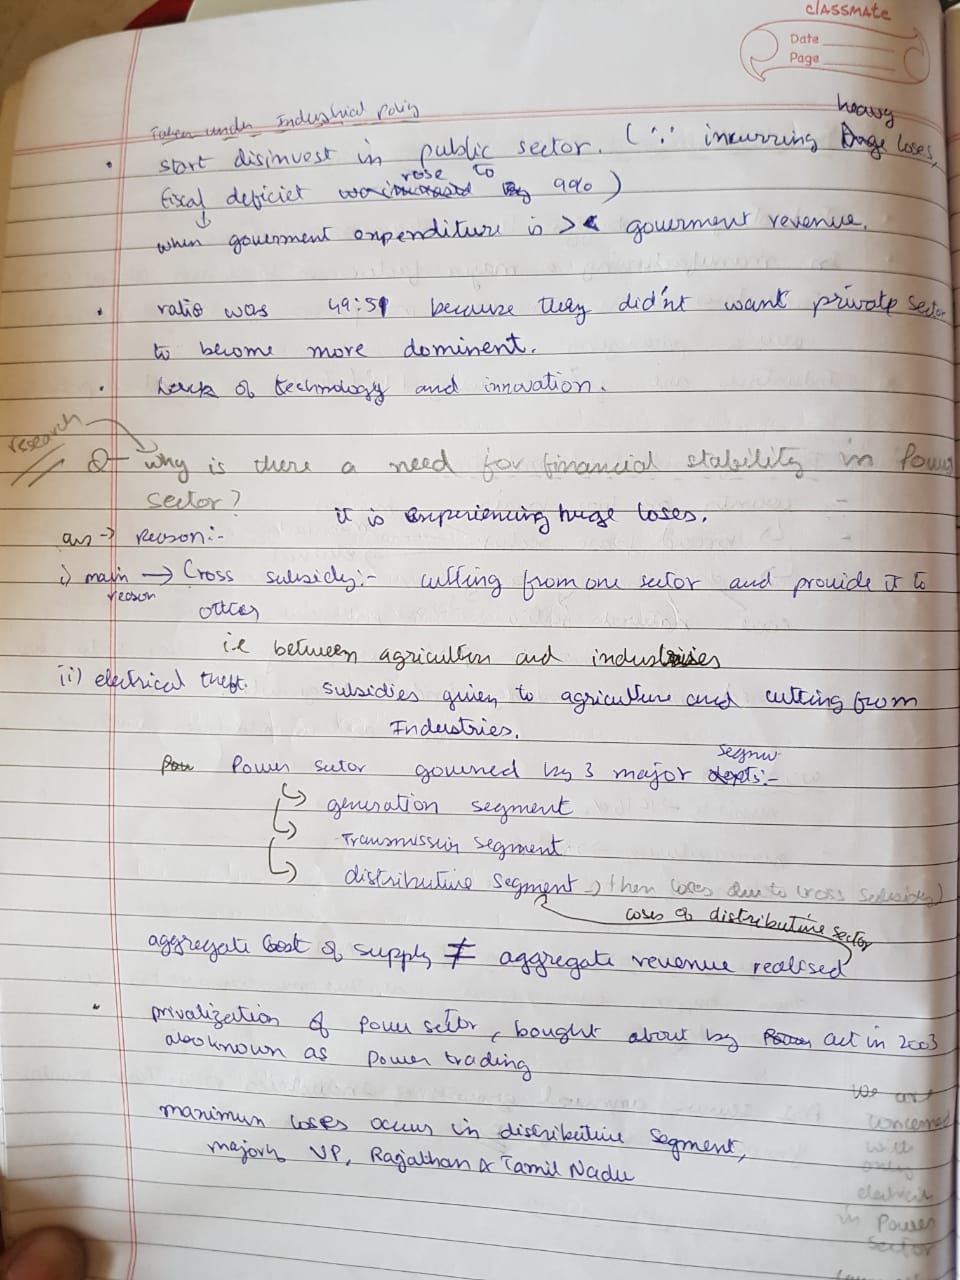 classmate
Date
Page
Taken under Industrial policy
heavy
• start disinvest in public sector. (∵ incurring huge loses,
rose to
fiscal deficiet 9% )
↓
when gouerment expenditure is > gouerment revenue.
• ratio was 49:51 because they did'nt want private sector
to become more dominent.
• Lack of technology and innovation.
research
Q- Why is there a need for financial stability in Power
sector?
it is experiencing huge loses.
ans → Reason:-
i) main → Cross subsidy:- cutting from one sector and provide it to
reason
other
i.e between agriculture and industries
(ii) electrical theft. subsidies given to agriculture and cutting from
Industries.
Power sector governed by 3 major
generation segment
Transmission segment
distributive segment → then loses due to cross subsidy)
loses of distributive sector
aggregate cost of supply ≠ aggregate revenue realised
• privatization of Power sector, bought about by act in 2003
also known as Power trading
maximum loses occur in distributive segment,
majorly UP, Rajasthan & Tamil Nadu
We are
concerned
with
only
electricity
in Power
sector